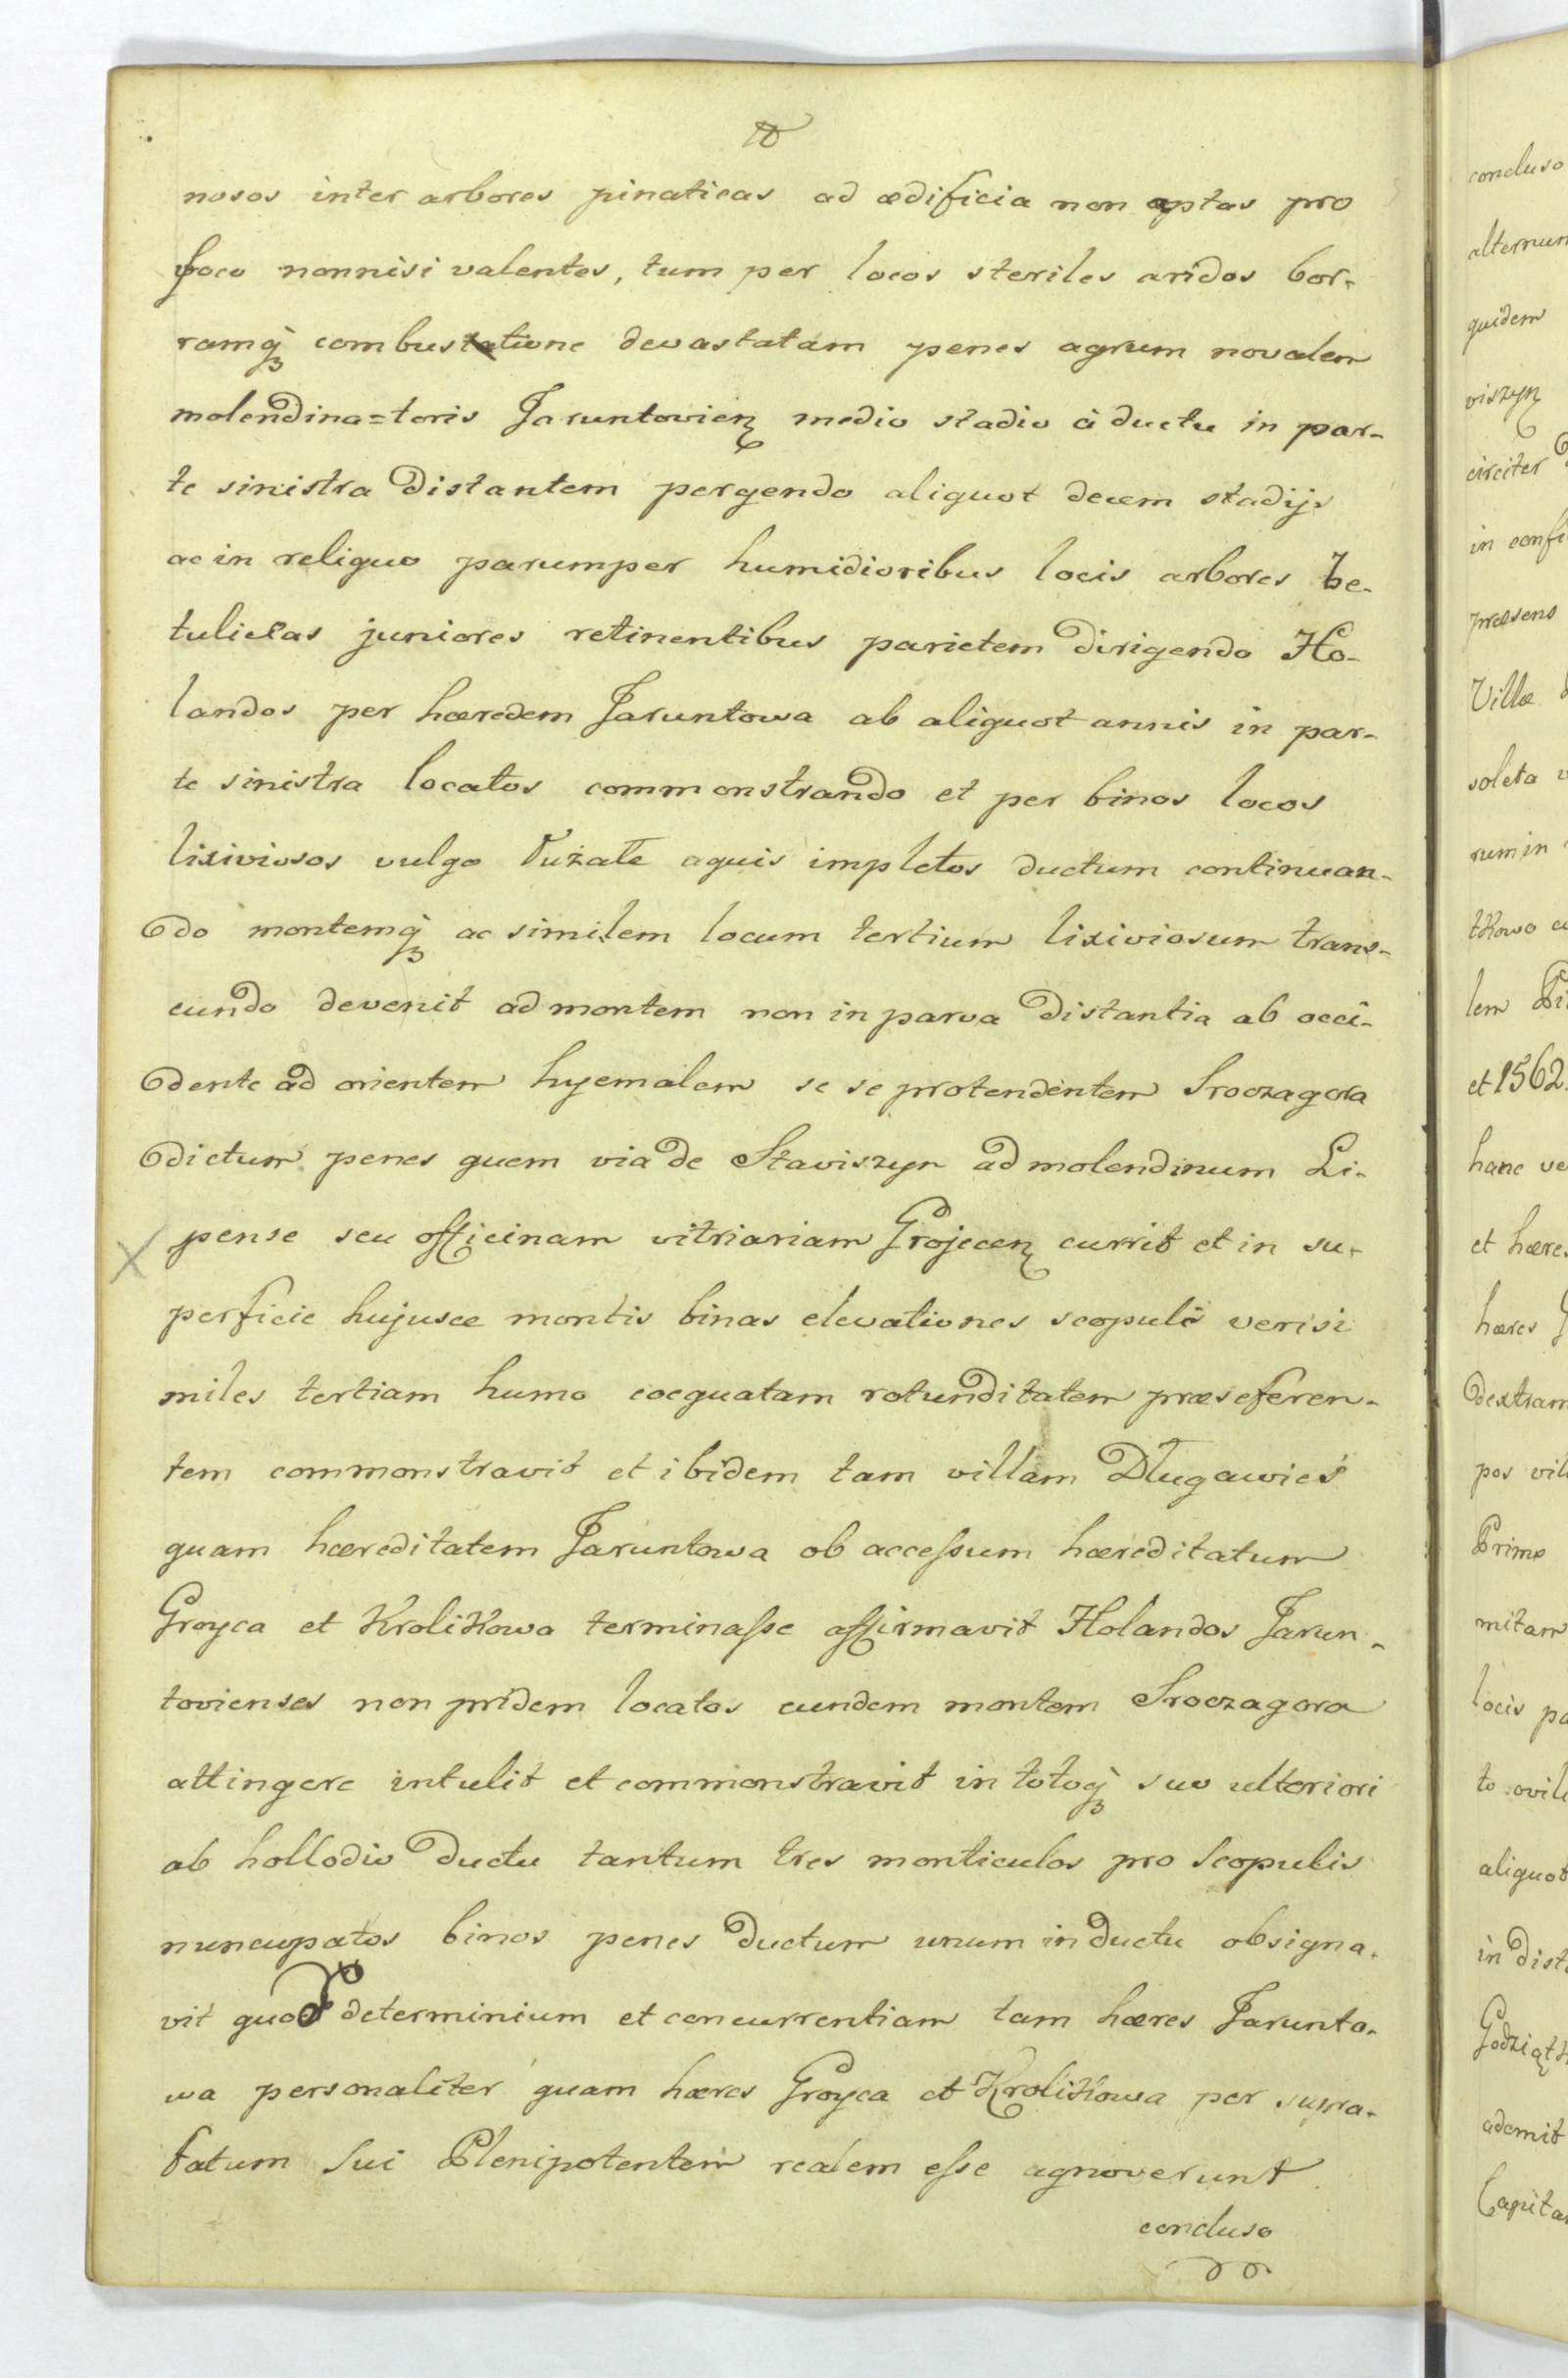 nosos inter arbores pinaticas ad ædificia non aptas pro
foco nonnisi valentes, tum per locos steriles aridos bor-
ramq́ combustione devastatam penes agrum novalem
molendina=toris Jaruntovien medio stadio à ductu in par-
te sinistra distantem pergendo aliquot decem stadijs
ac in reliquo parumper humidioribus locis arbores be-
tulicas juniores retinentibus parietem dirigendo Ho-
landos per hæredem Jaruntowa ab aliquot annis in par-
te sinistra locatos commonstrando et per binos locos
lixiviosos vulgo aquis impletos ductum continuan-
do montemq́ ac similem locum tertium lixiviosum trans-
eundo devenit ad montem non in parva distantia ab occi-
dente ad orientem hyemalem se se protendentem Sroczagora
dictum penes quem via de Staviszyn ad molendinum Li-
pense seu officinam vitriariam Grojecen currit et in su-
perficie hujusce montis binas elevationes scopuli verisi
miles tertiam humo coequatam rotunditatem præseferen-
tem commonstravit et ibidem tam villam Dlugawieś
quam hæreditatem Jaruntowa ob accessum hæreditatum
Groyca et Krolikowa terminasse affirmavit Holandos Jarun-
tovienses non pridem locatos eundem montem Sroczagora
attingere intulit et commonstravit in totoq́ suo ulteriori
ab hollodio ductu tantum tres monticulos pro scopulis
nuncupatos binos penes ductum unum in ductu obsigna-
vit quod determinium et concurrentiam tam hæres Jarunto-
wa personaliter quam hæres Groyca et Krolikowa per supra-
fatum sui Plenipotentem realem esse agnoverunt
concluso
concluso
alternum
quidem
viszyn
circiter
in confi
præsens
Villæ
soleta
rum in
tkowo
lem
et 1562.
hanc ve
et hære
hæres
dextram
pos vill
Primo
mitam
locis pa
to ovile
aliquot
in dist
Godziątk
ademit
Capita